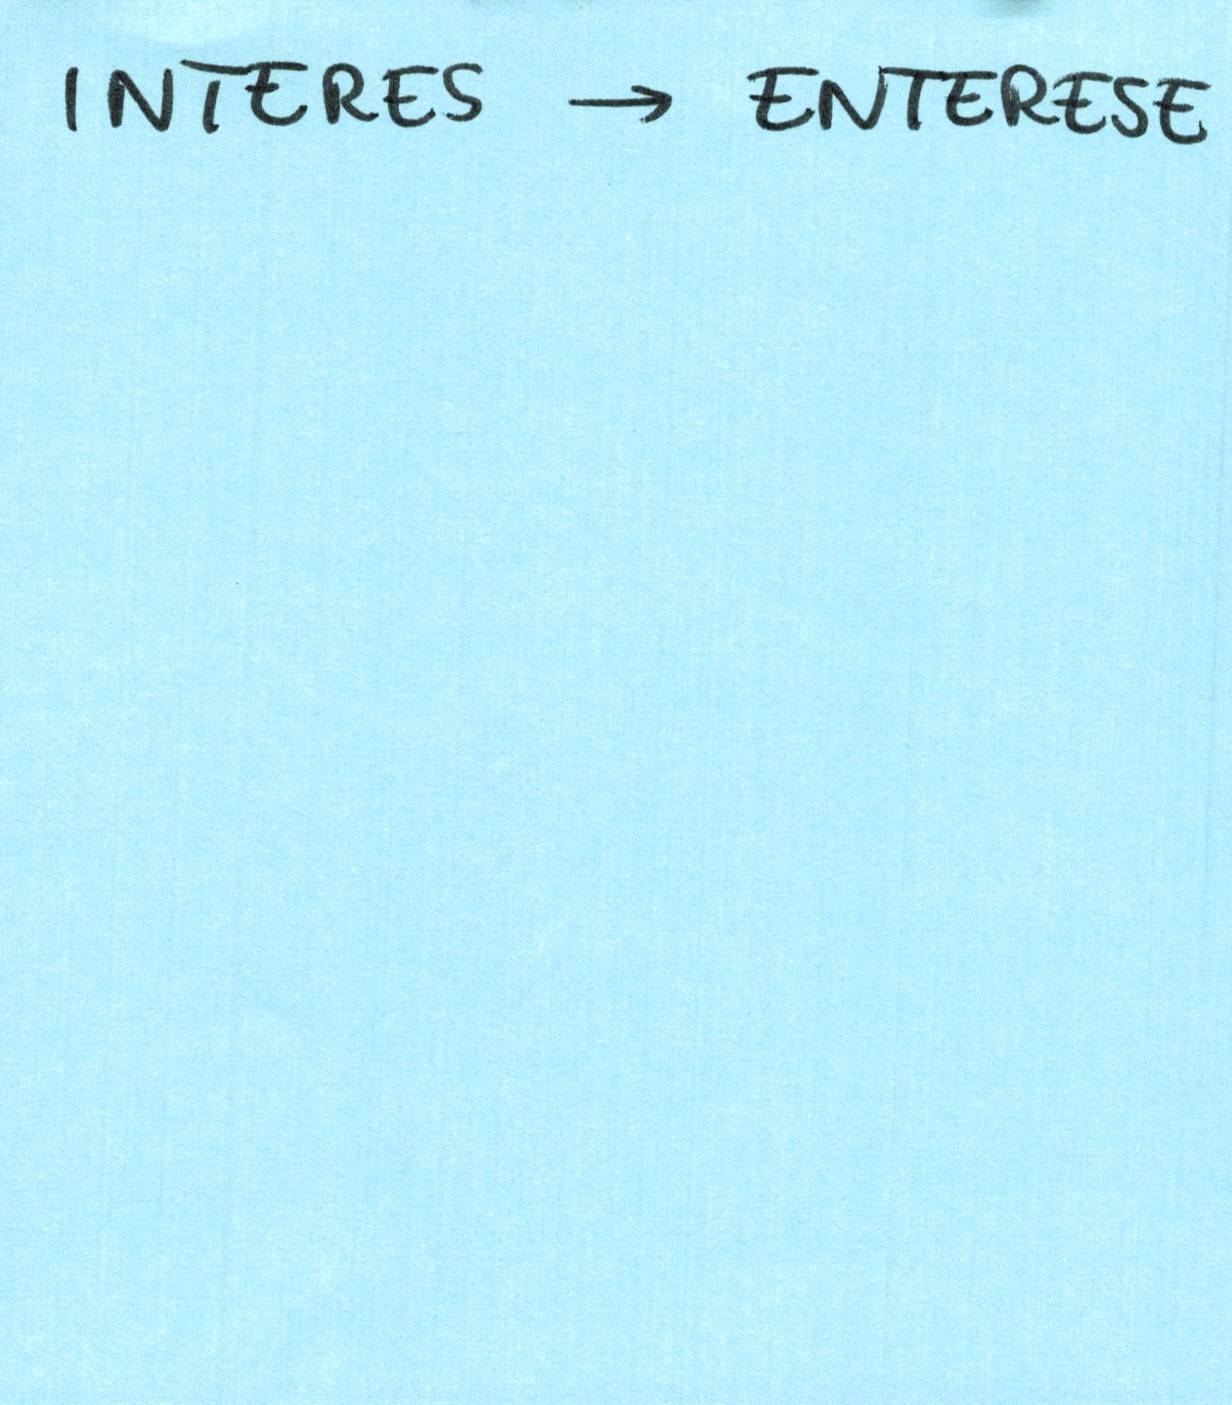 INTERES → ENTERESE